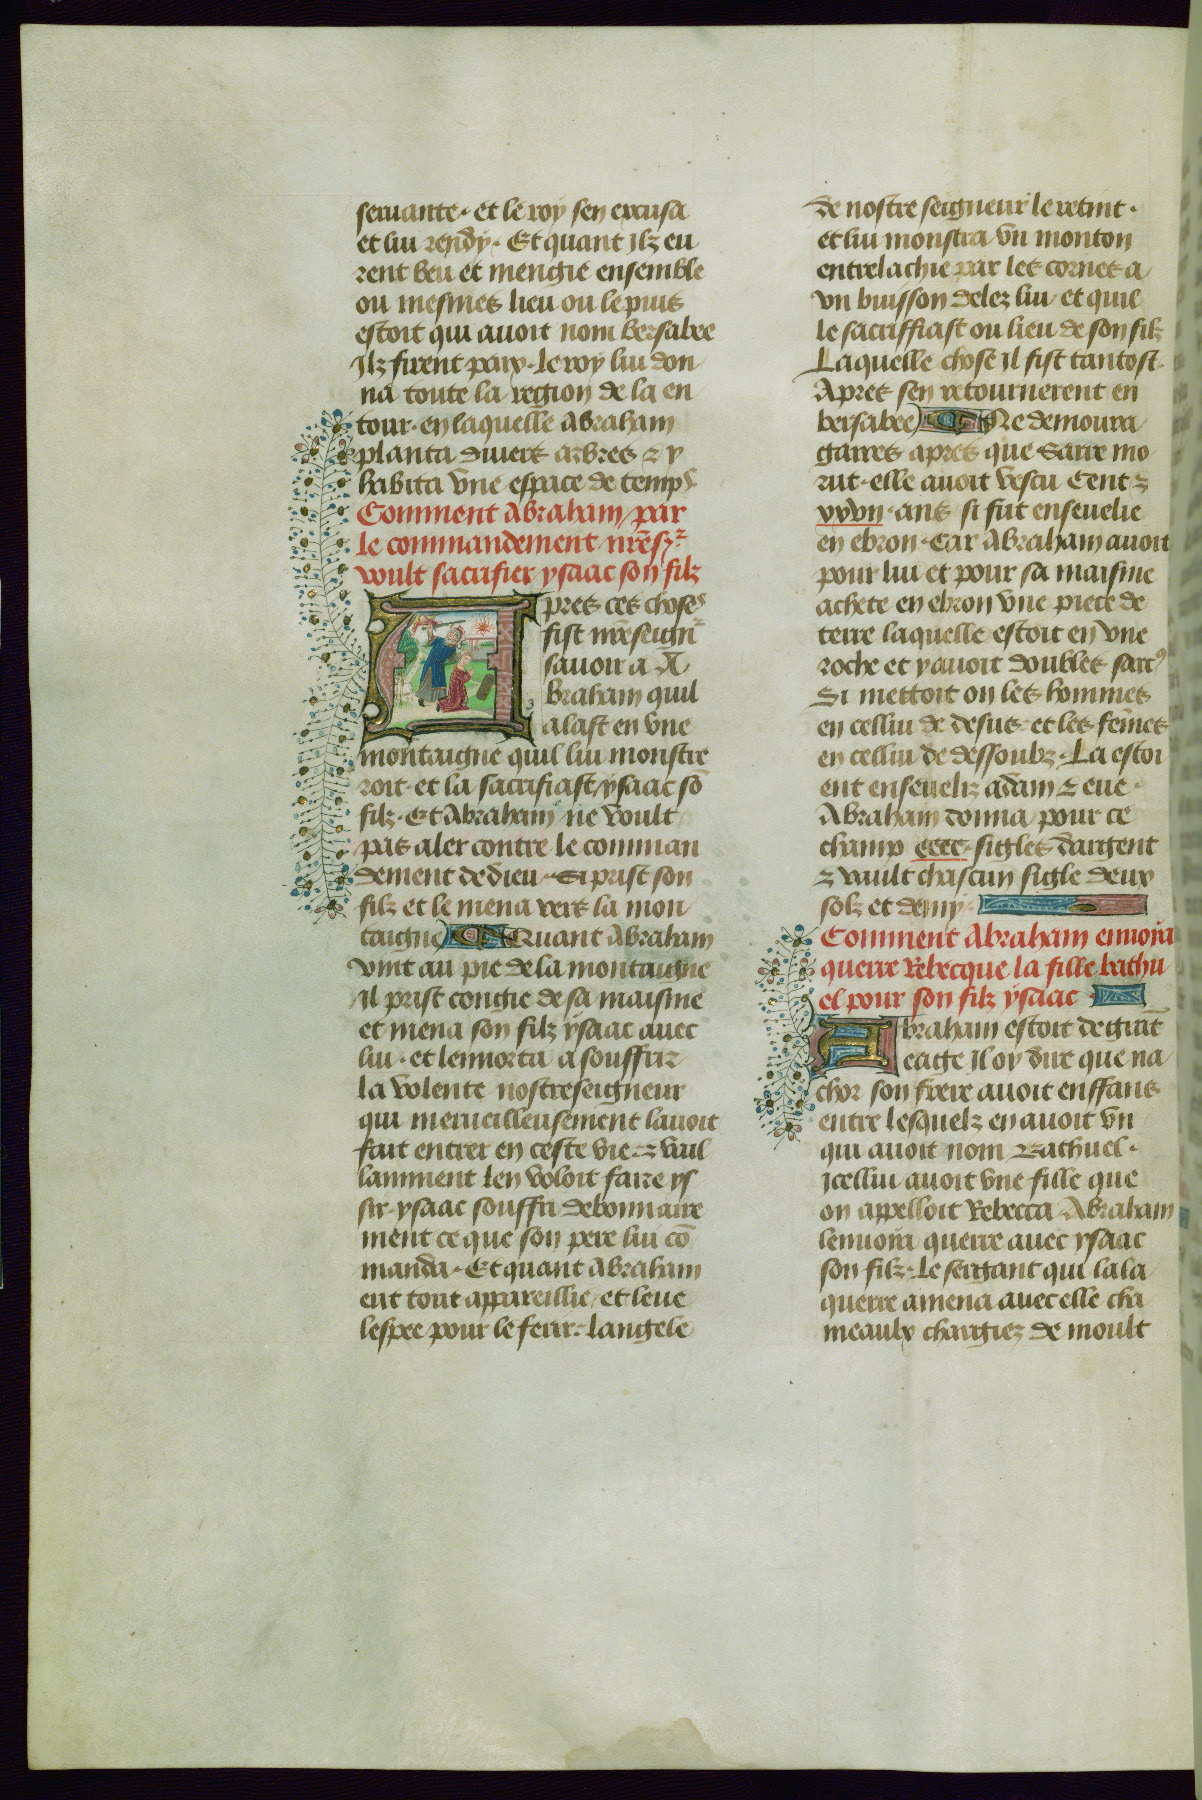 seruante · et le roy sen excusa
et lui rendy · Et quant Ilz eu
rent beu et mengie ensemble
ou mesmes lieu ou le puis
estoit qui auoit nom bersabee
Ilz firent paix · le roy lui don
na toute la region de la en
tour · en laquelle Abraham
planta divers arbres ⁊ y
habita vne espace de temps
Comment Abraham par
le commandement nr̃e sr̃
voult sacrifier ysaac son filz
Apres ces choses
fist nr̃e seignr̃
sauoir a A
braham quil
alast en vne
montaigne quil lui monstre
roit · et la sacrifiast ysaac sõ
filz · Et Abraham ne voult
pas aler contre le comman
dement de dieu · Si prist son
filz et le mena vers la mon
taigne Quant Abraham
vint au pie de la montaigne
il prist congie de sa maisnie
et mena son filz ysaac auec
lui · et lennorta a souffrir
la volente nostreseigneur
qui merueilleusement lauoit
fait entrer en ceste vie ⁊ vail
lamment len voloit faire ys
sir · ysaac souffri debonnaire
ment ce que son pere lui cõ
manda · Et quant Abraham
eut tout appareillie et leue
lespee pour le ferir · langele
de nostre seigneur le retint ·
et lui monstra vn monton
entrelachie par les cornes a
vn buisson delez lui et que
le sacriffiast ou lieu de son filz
Laquelle chose il fist tantost
Apres sen retournerent en
bersabee Ne demoura
gaires apres que Sarre mo
rut · elle auoit vescu Cent ⁊
xxvii · ans si fut enseuelie
en ebron · Car Abraham auoit
pour lui et pour sa maisnie
achete en ebron vne piece de
terre laquelle estoit en vne
roche et y auoit doubles sarcꝰ
Si mettoit on les hommes
en cellui de desus et les fẽmes
en cellui de dessoubz · La estoi
ent enseueliz adam ⁊ eue ·
Abraham donna pour ce
champ cccc · sigles dargent
⁊ vault chascun sigle deux
solz et demy ·
Comment Abraham enuoia
querre Rebecque la fille bathu
el pour son filz ysaac
Abraham estoit de grãt
eage Il oy dire que na
chor son frere auoit enffans
entre lesquelz en auoit vn
qui auoit nom Bathuel ·
Icellui auoit vne fille que
on appelloit Rebecca Abraham
lenuoia querre auec ysaac
son filz · Le sergant qui lala
querre amena auec elle cha
meaulx chargiez de moult